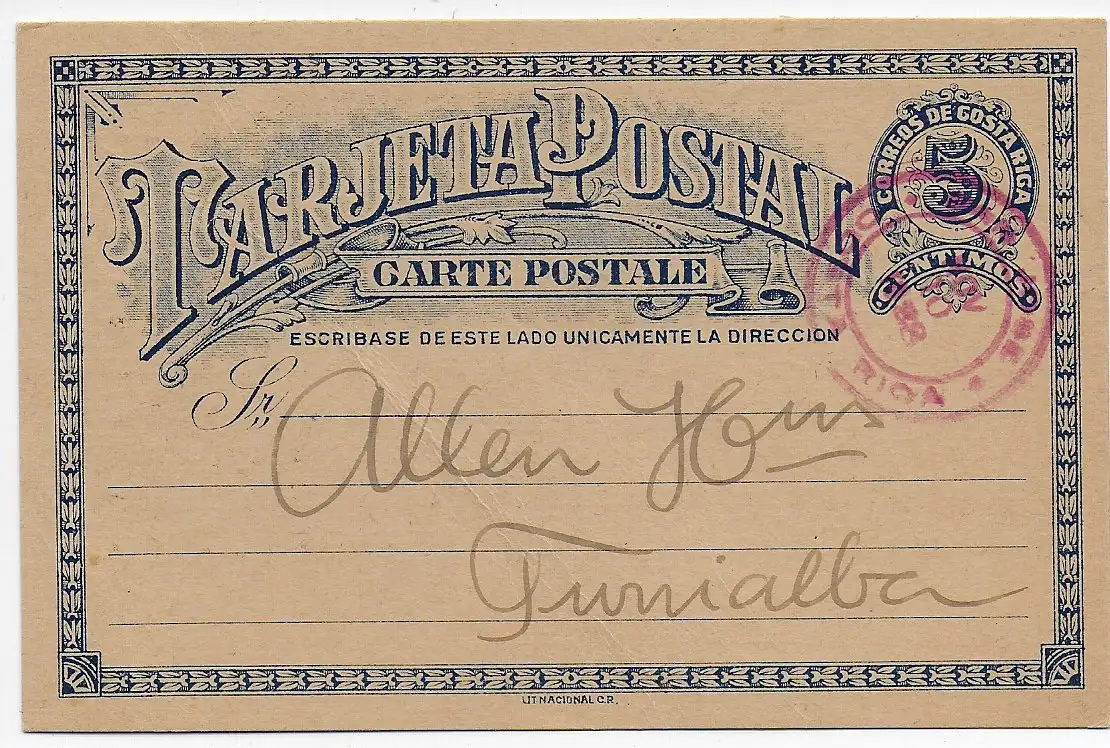 TARJETA POSTAL
CORREOS DE COSTA RICA
5
CENTIMOS
CARTE POSTALE
ESCRIBASE DE ESTE LADO UNICAMENTE LA DIRECCION
RICA
Sr,,
Allen Hnos
Turrialba
LIT NACIONAL C.R.